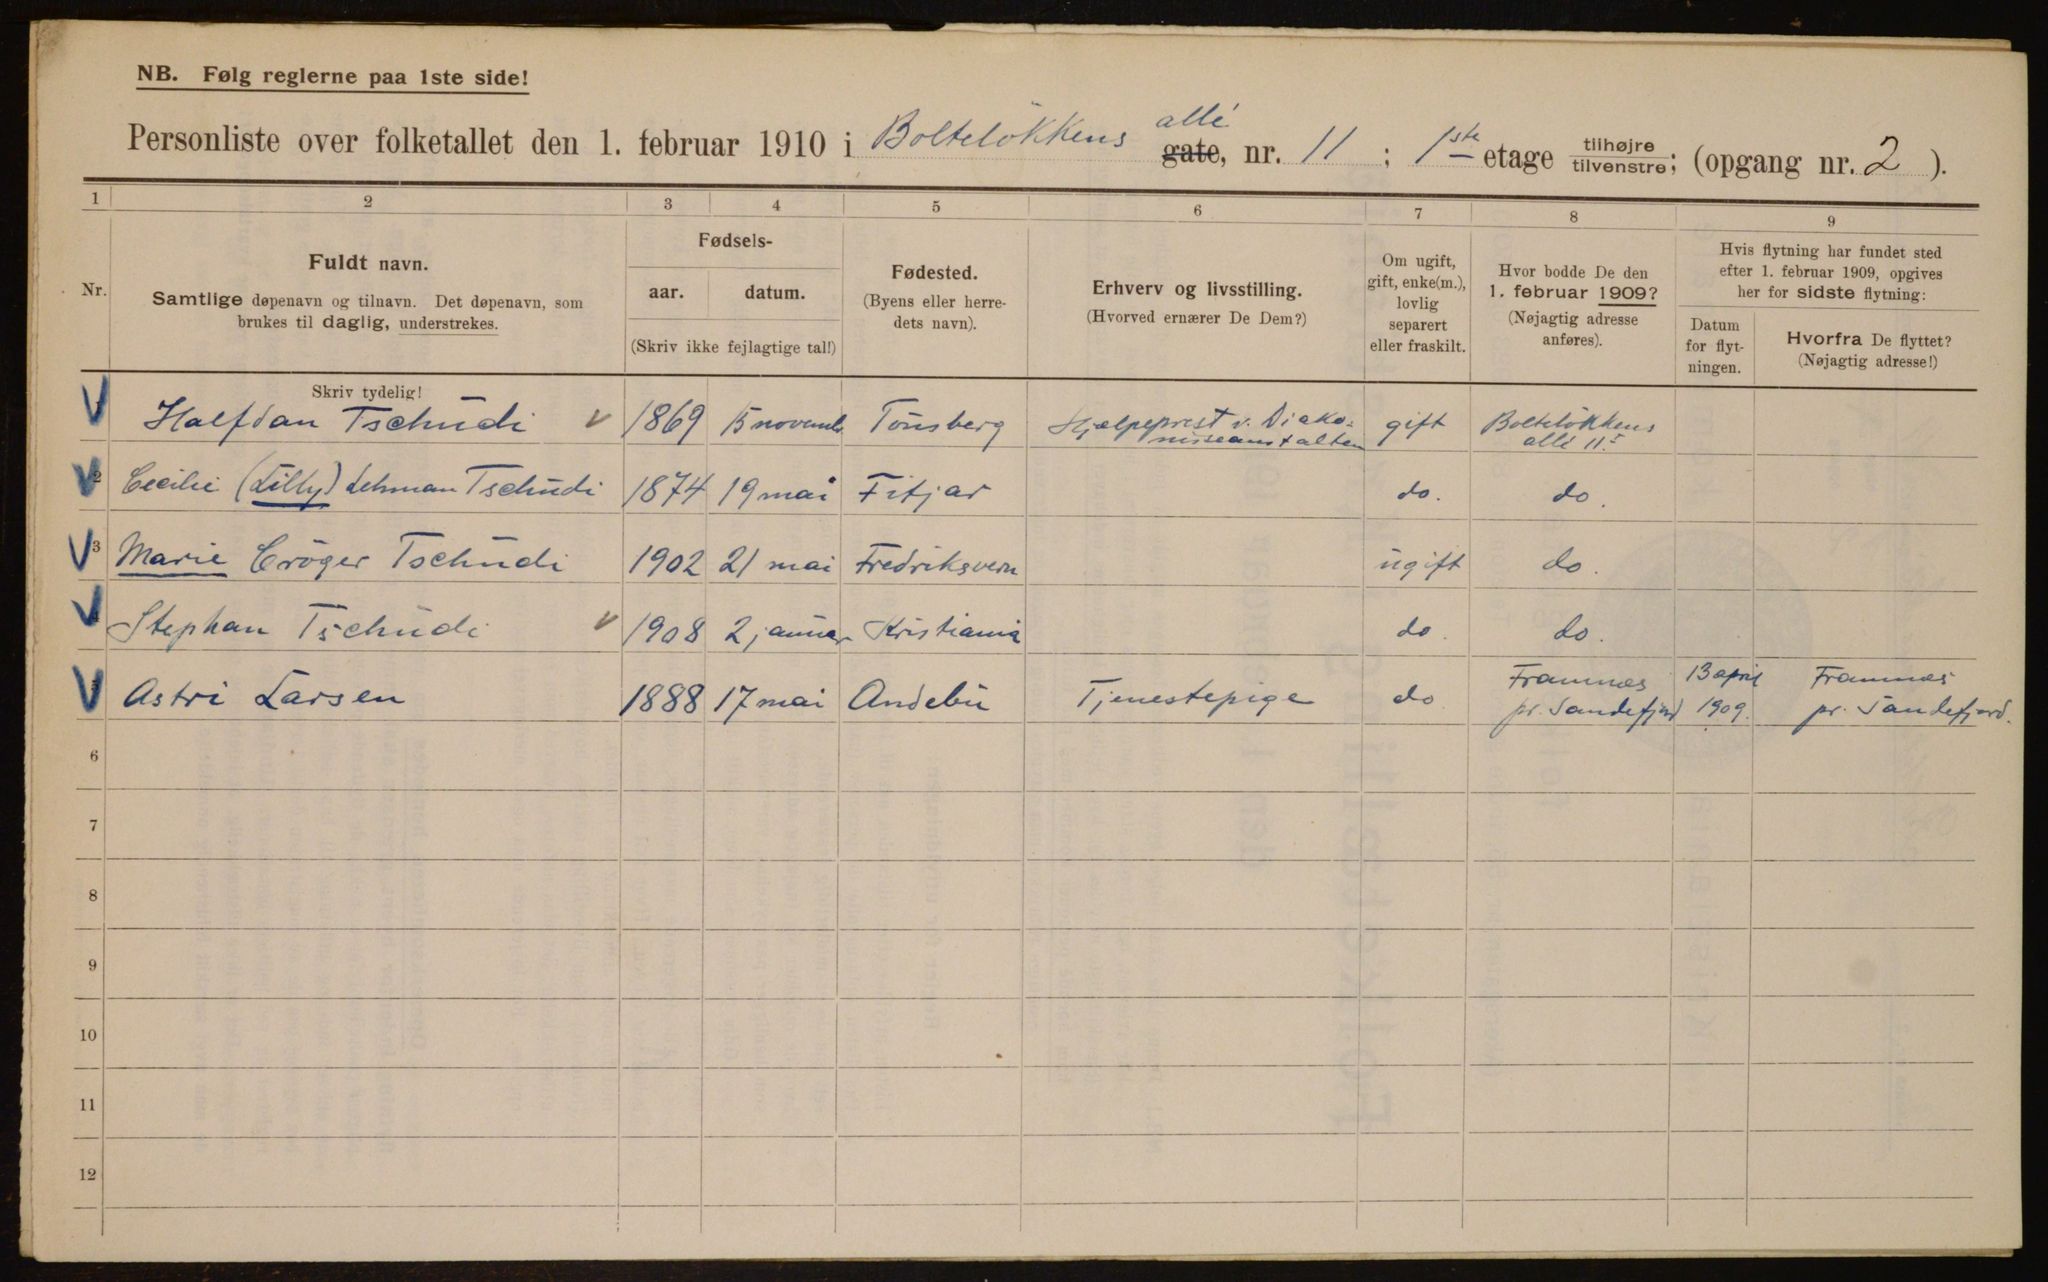 NB. Følg reglerne paa 1ste side!
Personliste over folketallet den 1. februar 1910 i Bolteløkkens allé gate, nr. 11 ; 1ste etage tilhøjre tilvenstre; (opgang nr. 2 ).
1 2 3 4 5 6 7 8 9
Nr.
Fuldt navn.
Samtlige døpenavn og tilnavn. Det døpenavn, som
brukes til daglig, understrekes.
Skriv tydelig!
Fødsels-
aar. datum.
(Skriv ikke fejlagtige tal!)
Fødested.
(Byens eller herre-
dets navn).
Erhverv og livsstilling.
(Hvorved ernærer De Dem?)
Om ugift,
gift, enke(m.),
lovlig
separert
eller fraskilt.
Hvor bodde De den
1. februar 1909?
(Nøjagtig adresse
anføres).
Hvis flytning har fundet sted
efter 1. februar 1909, opgives
her for sidste flytning:
Datum
for flyt-
ningen.
Hvorfra De flyttet?
(Nøjagtig adresse!)
Halfdan Tschudi 1869 15 novembr Tønsberg Hjælpeprest v. Diako- gift Bolteløkkens
nisseanstalten allé 11 I
2 Cecilie (Lilly) Lehman Tschudi 1874 19 mai Fitjar do. do.
3 Marie Crøger Tschudi 1902 21 mai Fredriksvern ugift do.
4 Stephan Tschudi 1908 2 januar Kristiania do. do.
5 Astri Larsen 1888 17 mai Andebu Tjenestepige do Framnæs 13 april Framnæs
pr. Sandefjord 1909. pr. Sandefjord.
6
7
8
9
10
11
12